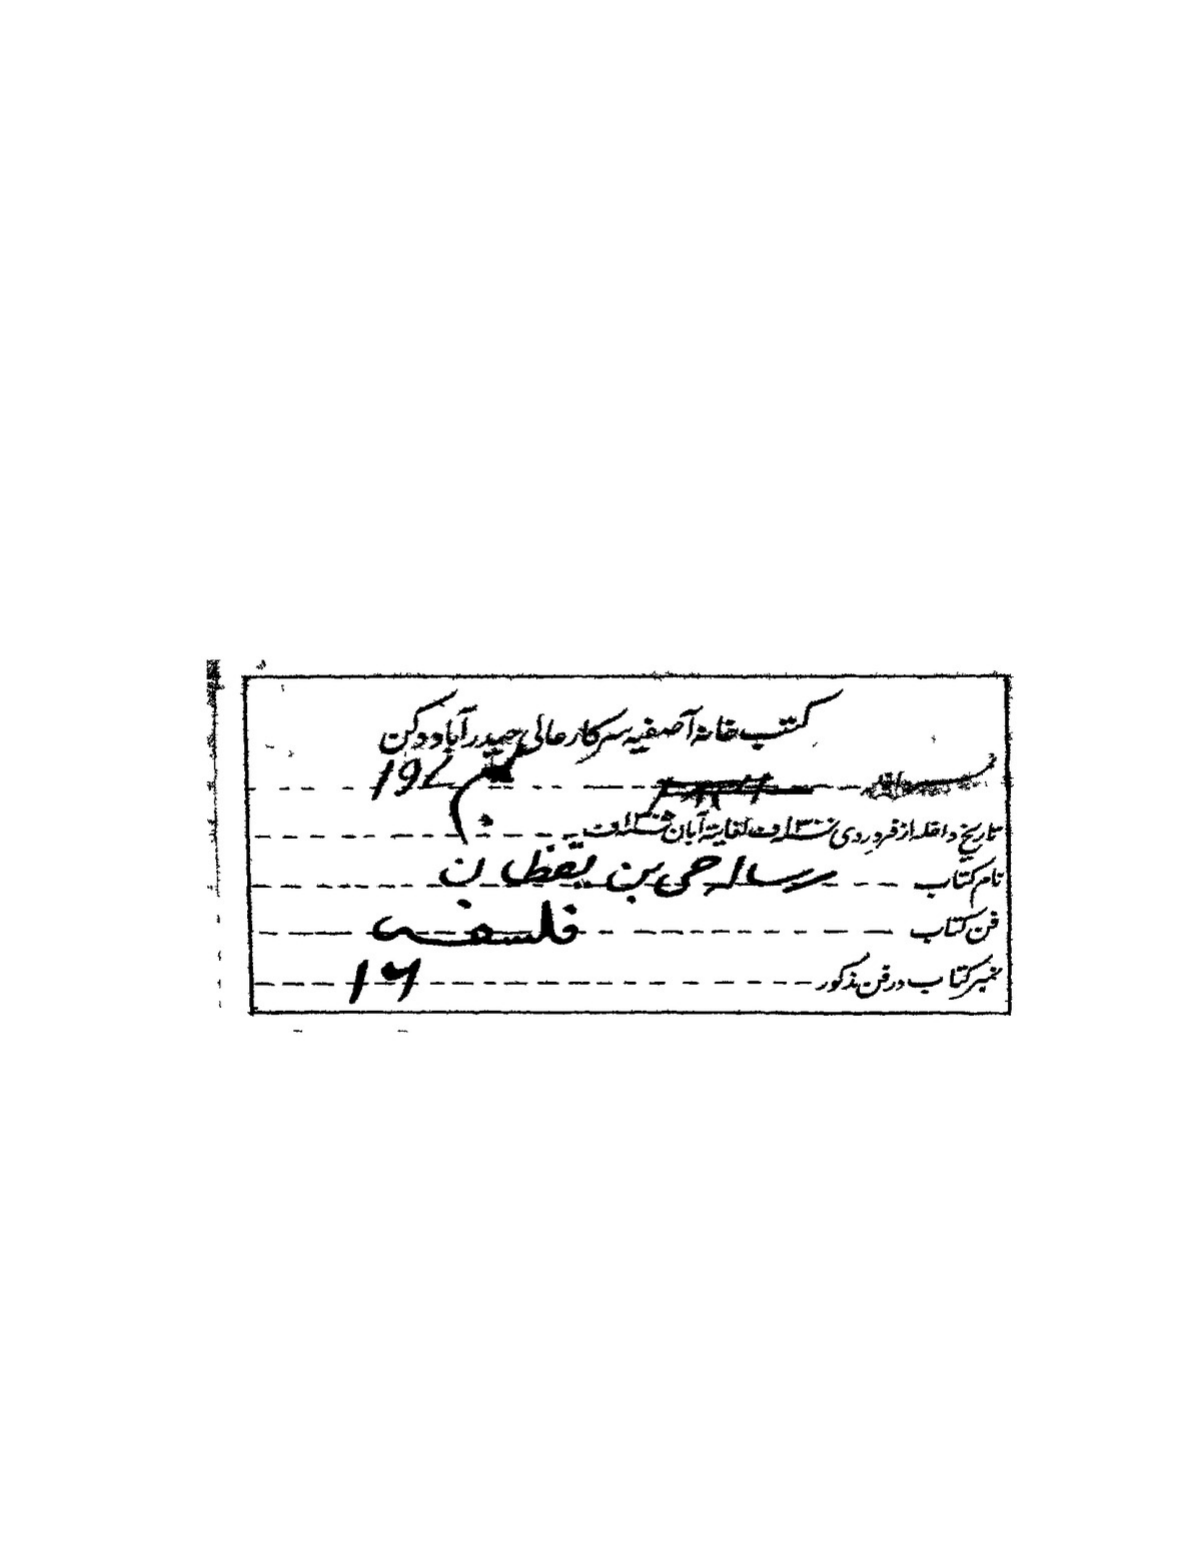 کتب خانہ آصفیہ سرکار عالی حیدرآباد دکن
تاریخ داخلہ از فروردی لغایۃ آبان
نام کتاب رسالہ حی بن یقظان
فن کتاب فلسفہ
نمبر کتاب در فن مذکور ۱۶